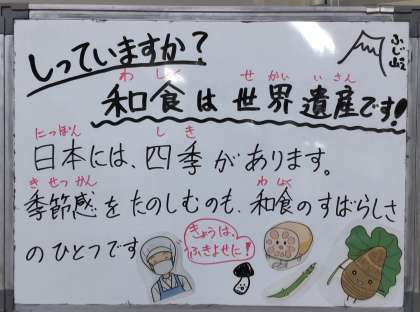 しっていますか?
ふじ山
わしょく せかい いさん
和食は世界遺産です!
にっぽん しき
日本には、四季があります。
きせつかん わしょく
季節感をたのしむのも、和食のすばらしさ
のひとつです
きょうは、
ふきよせに!